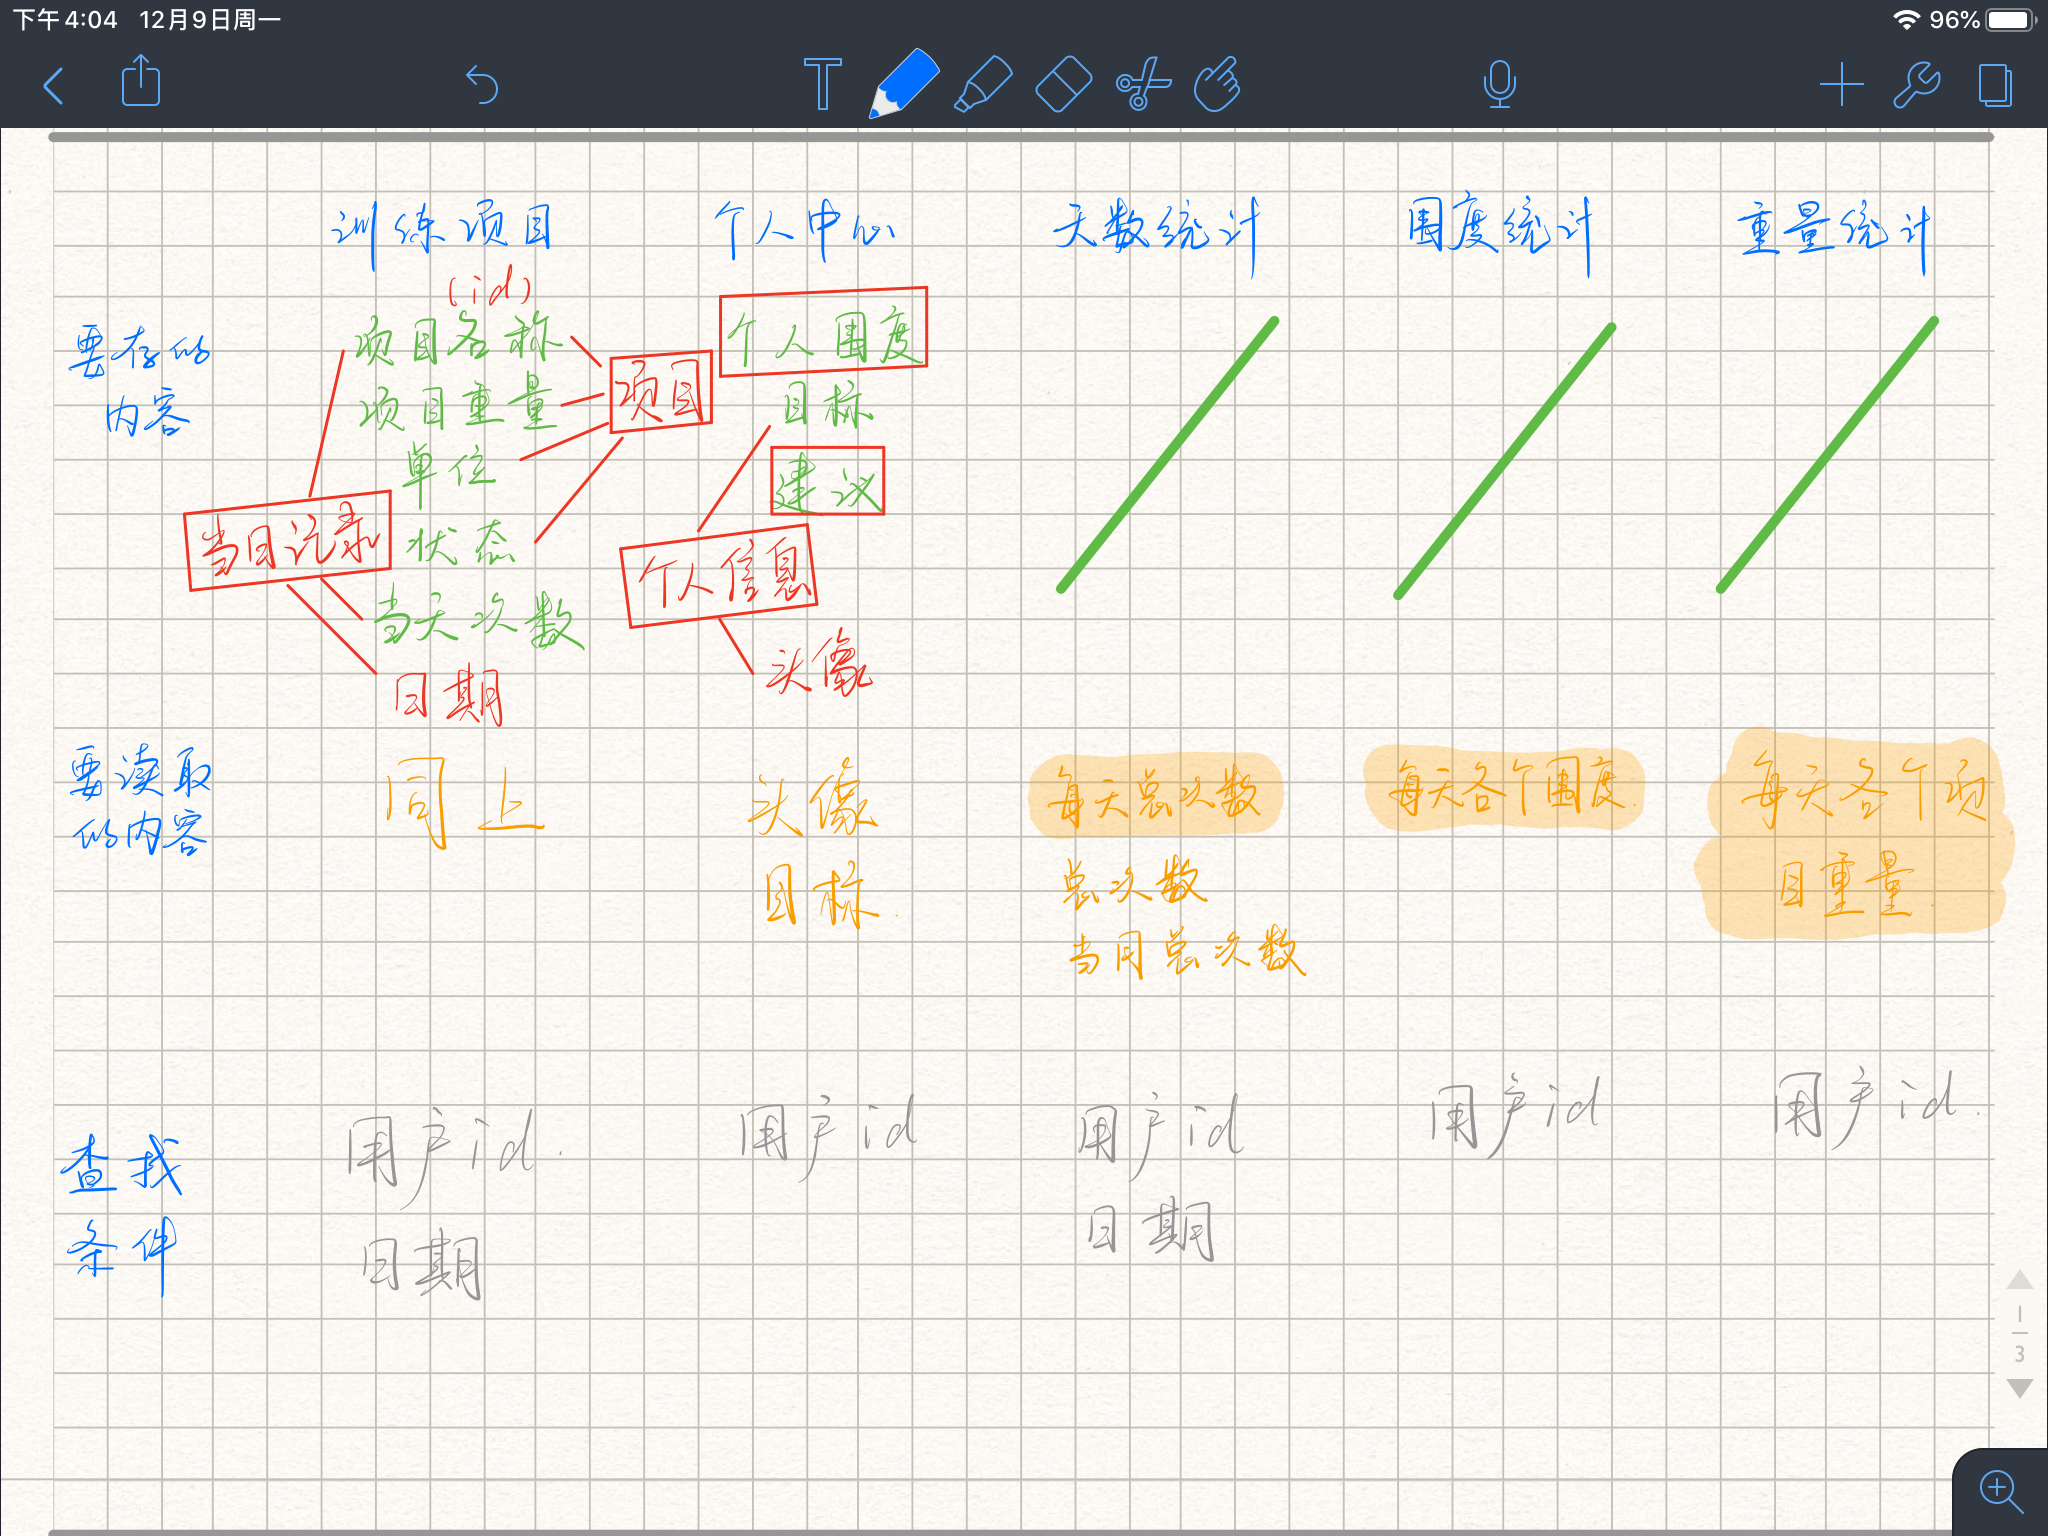 下午4:04 12月9日周一
96%
T
训练项目 个人中心 天数统计 围度统计 重量统计
(id)
要存的
内容
项目名称
项目重量
单位
状态
当天次数
日期
项目
当日记录
个人围度
目标
建议
个人信息
头像
要读取
的内容
同上
头像
目标.
每天总次数
总次数
当月总次数
每天各个围度.
每天各个项
目重量.
查找
条件
用户id.
日期
用户id
用户id
日期
用户id
用户id.
1
3